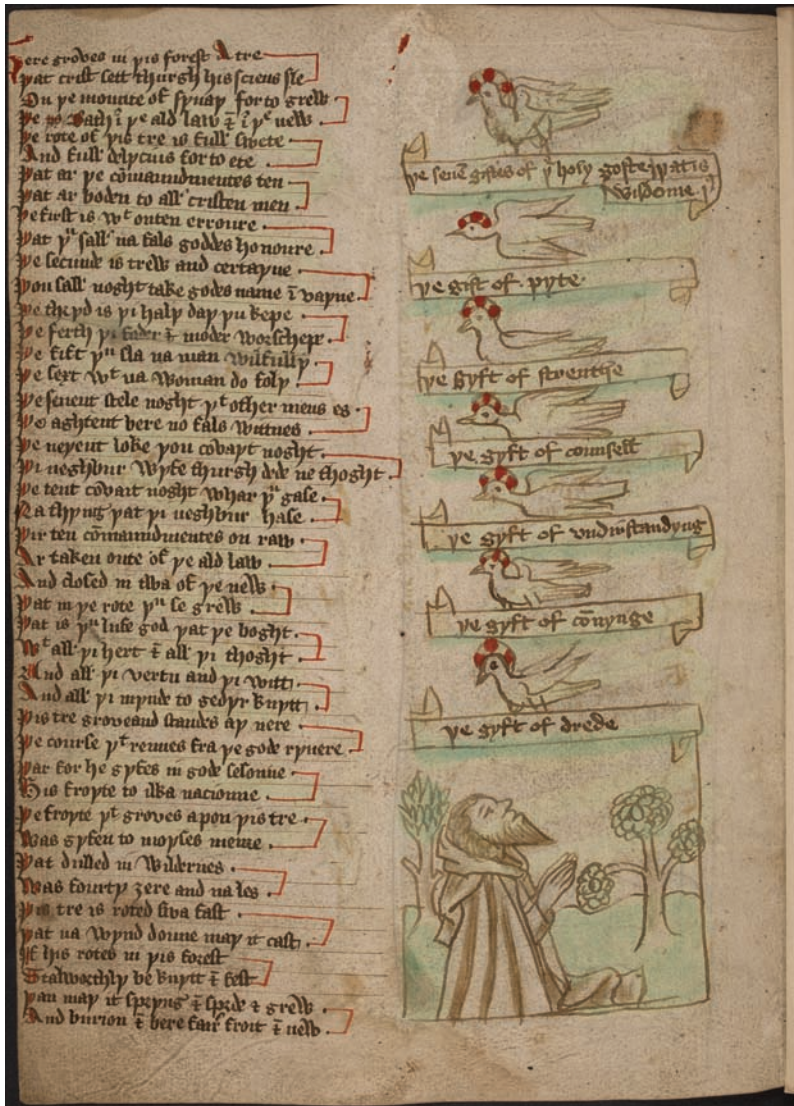 Here groves in þis forest A tre
Þat crist sett thurgh his sciens sle
On þe mounte of synay forto grew
Þe bath ī þe ald law & ī þe new
Þe rote of þis tre is full swete
And full delycius forto ete
Þat ar þe cōmaundmentes ten
Þat ar boden to all cristen men
Þe first is wt outen erroure
Þat þu sall na fals goddes honoure
Þe secunde is trew and certayne
Þou sall noght take godes name ī vayne
Þe thryd is þi haly day þu kepe
Þe ferth þi fader & moder worschepe
Þe fift þu sla na man wilfully
Þe sext wt na woman do foly
Þe seuent stele noght þt other mens es
Þe aghtent bere no fals wittnes
Þe neyent loke þou cōvayt noght
Þi neghbur wyfe thurgh dede ne thoght
Þe tent cōvait noght whar þu gase
Na thyng þat þi neghbur hase
Þir ten cōmaundmentes on raw
Ar taken oute of þe ald law
And closed in twa of þe new
Þat in þe rote þu se grew
Þat is þu lufe god þat þe boght
Wt all þi hert & all þi thoght
And all þi vertu and þi witt
And all þi mynde to gedyr knytt
Þis tre groveand standes ay nere
Þe course þt rennes fra þe gode ryuere
Þar for he gyfes in gode sesonne
His froyte to ilka nacionne
Þe froyte þt groves apon þis tre
Was gyfen to moyses meine
Þat dwlled in wildernes
Was fourty ȝere and na les
Þis tre is roted swa fast
Þat na wynd donne may it cast
If his rotes in þis forest
Stalworthly be knytt & fest
Þan may it spryng & sprede & grew
And burion & bere fair froit & new
þe seuē giftes of þe holy goste þat is
wisdome
þe gift of pyte
þe gyft of strenthe
þe gyft of counsell
þe gyft of vndirstandyng
þe gyft of cōnynge
þe gyft of drede